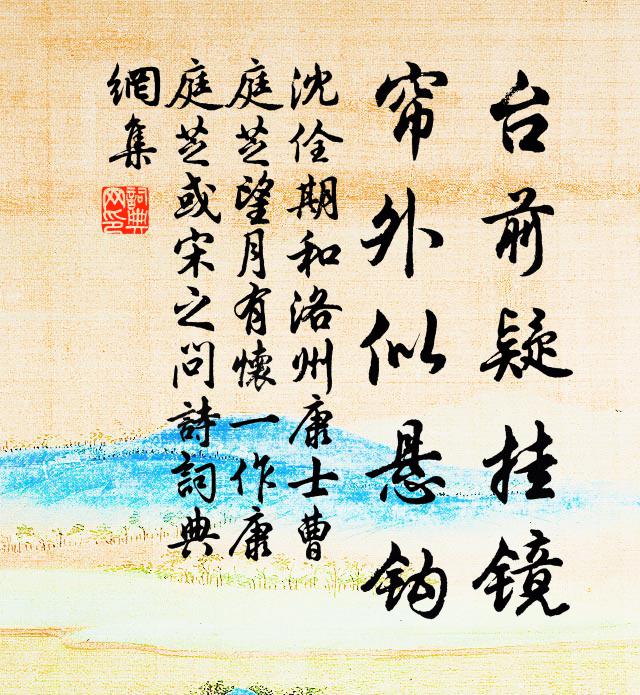 台前疑挂镜
帘外似悬钩
沈佺期和洛州康士曹
庭芝望月有懷一作康
庭芝或宋之问詩詞典
網集
詞典网印